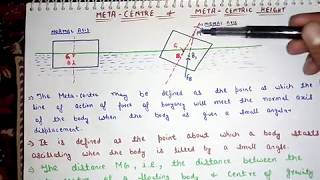 META-CENTRE & META-CENTRIC HEIGHT
NORMAL AXIS
NORMAL AXIS
G
B
G
B
B1
FB
→ The Meta-centre may be defined as the point at which the
line of action of force of buoyancy will meet the normal axis
of the body when the body is given a small angular
displacement.
→ It is defined as the point about which a body starts
oscillating when the body is tilted by a small angle.
→ The distance MG, i.e., the distance between the
of a floating body & centre of gravity